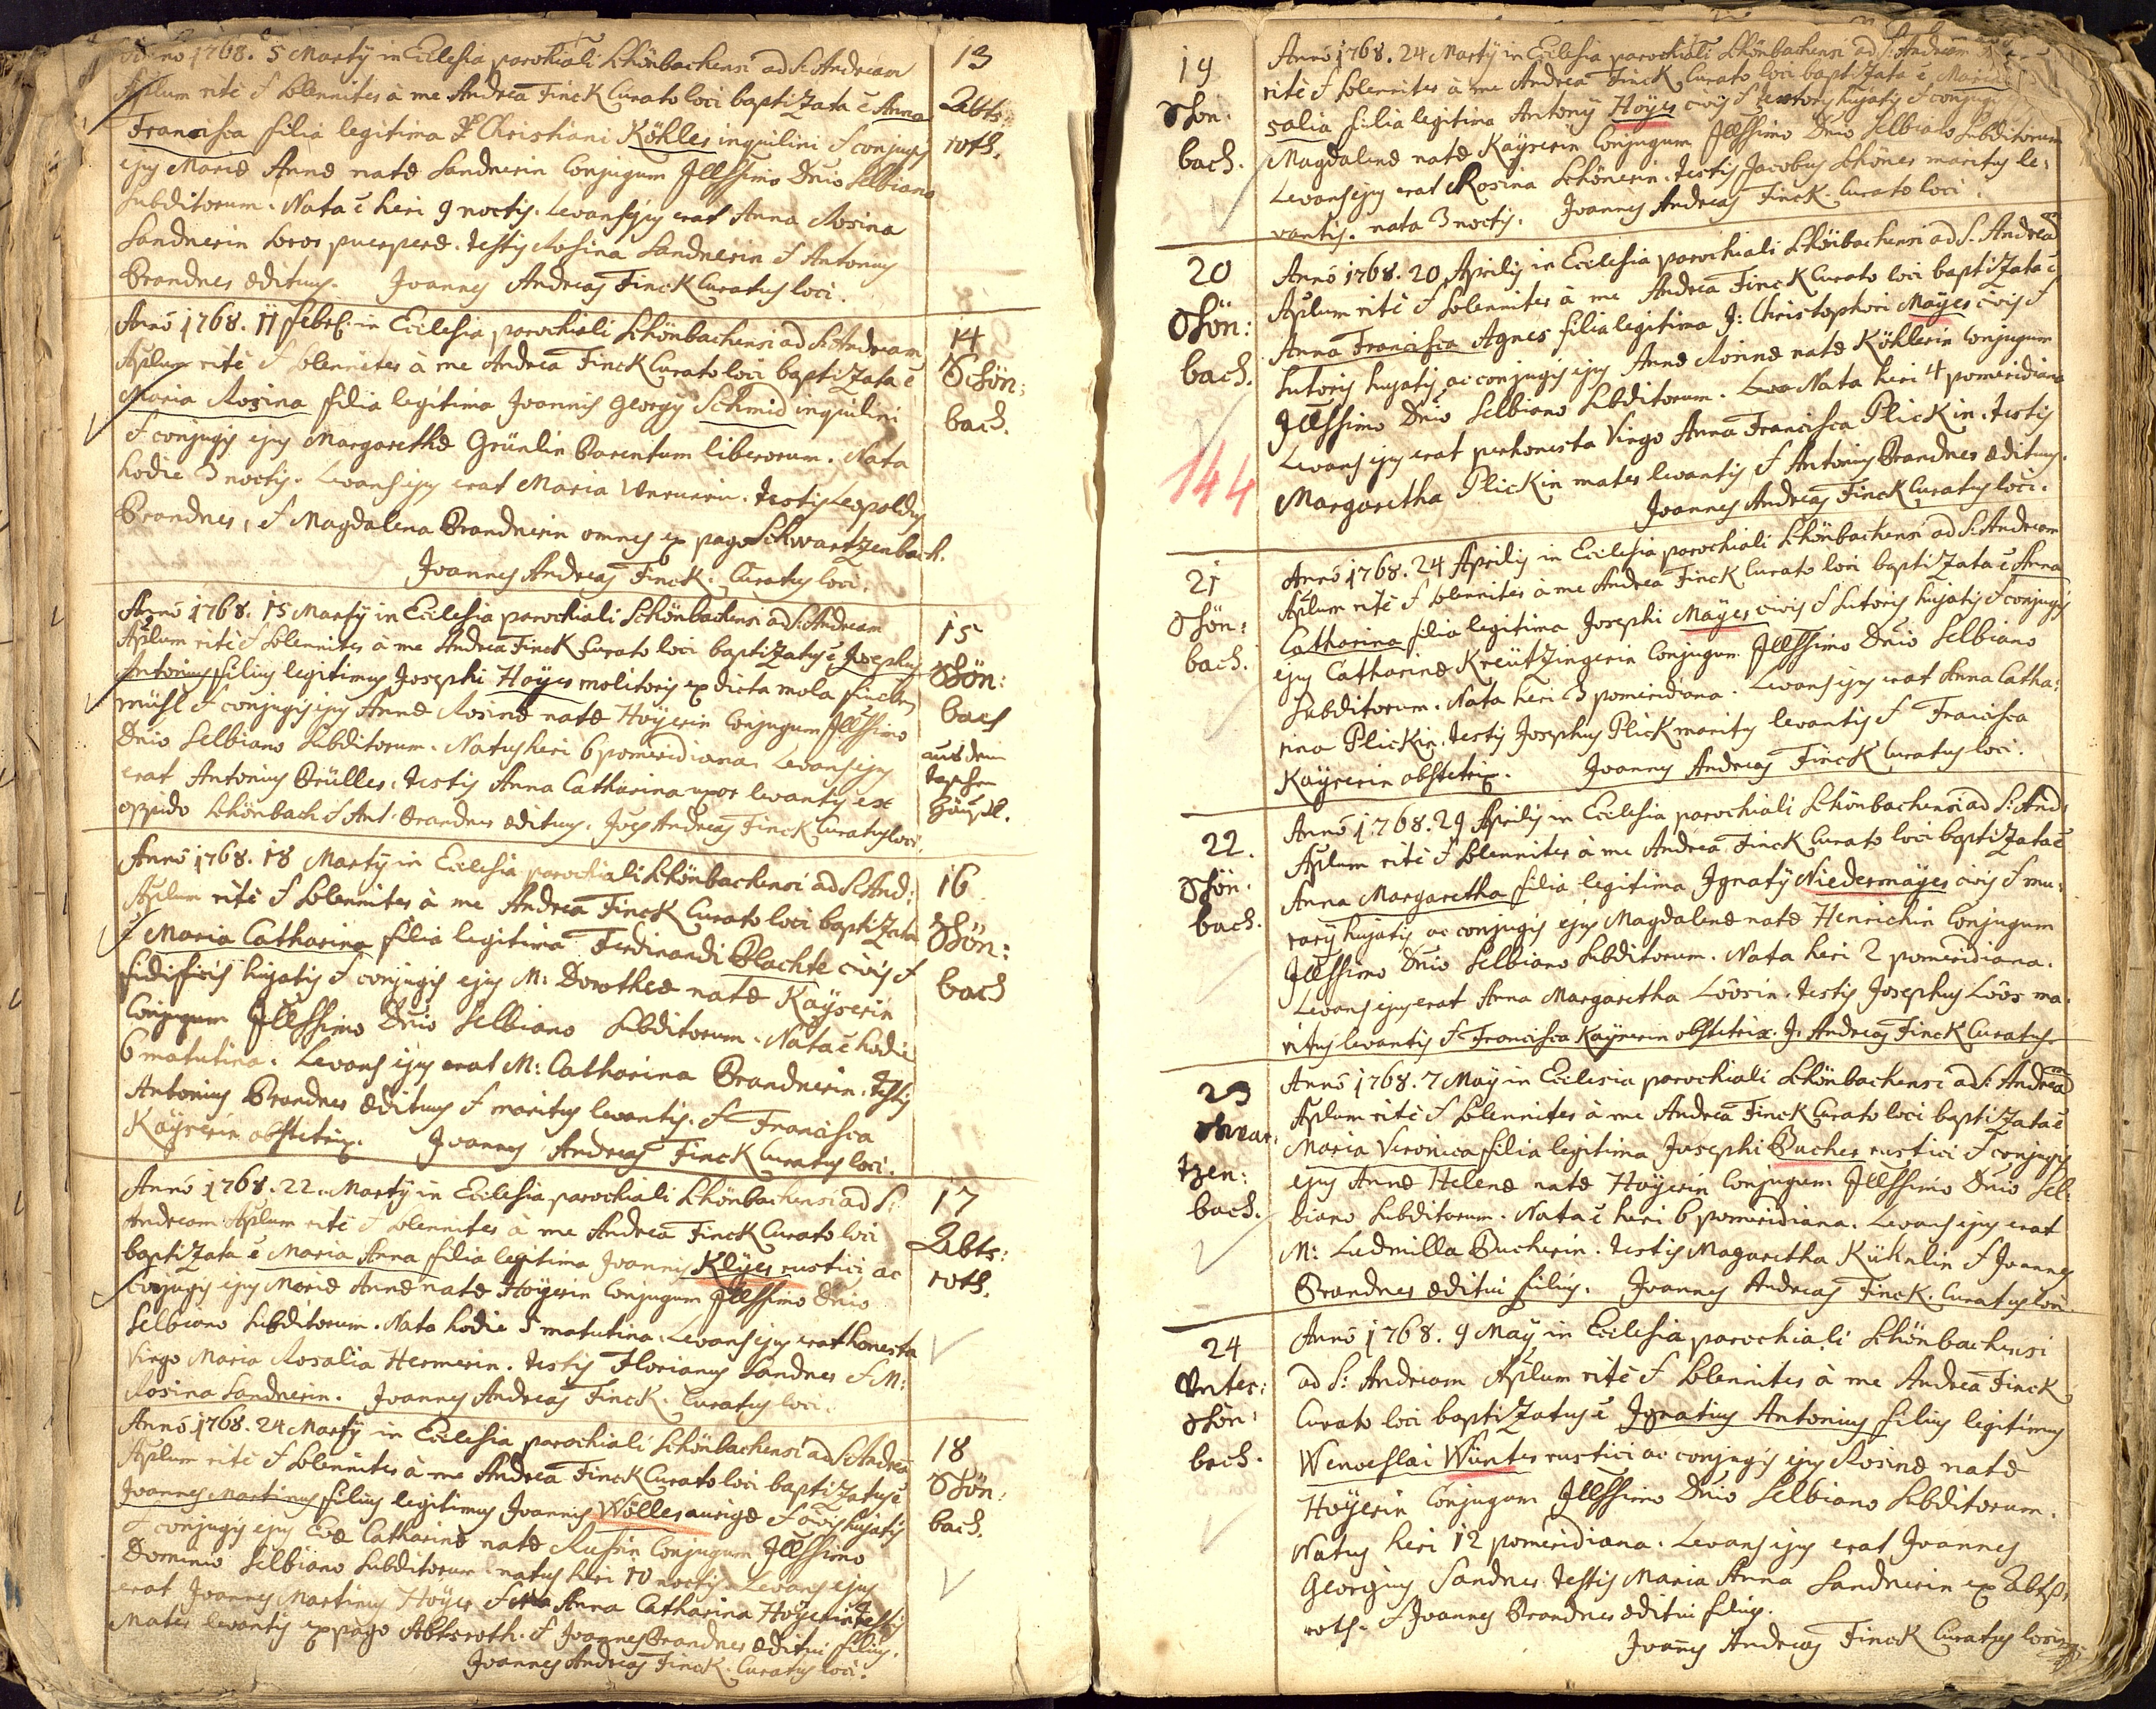 Anno 1768. 5 Martÿ in Ecclesia parochiali Schönbachensi ad S: Andream
Aplum rité & Solenniter à me Andreâ Finck Curato loci baptizata ẽ Anna
Francisca filia legitima Christiani Köhler inquilini & conjugis
ejus Mariæ Annæ natæ Sandnerin Conjugum Illssimo Dño Selbiano
Subditorum. Nata ẽ heri 9 noctis. Levans ejus erat Anna Rosina
Sandnerin soror puerperæ. testis Rosina Sandnerin & Antonius
Brandner ædituus. Joannes Andreas Finck Curatus loci.
13
Abts
roth.
Anno 1768. 11 febr: in Ecclesia parochiali Schönbachensi ad S: Andream
Aplum rité & Solenniter à me Andreâ Finck Curato loci baptizata ẽ
Maria Rosina filia legitima Joannis Georgÿ Schmid inquilini
& conjugis ejus Margarethæ Grünlin Parentum liberorum. Nata
hodie 3 noctis. Levans ejus erat Maria. testis Leopoldus
Brandner, & Magdalena Brandnerin omnes ex pago Schwartzenbach.
Joannes Andreas Finck. Curatus loci.
14
Schön:
bach.
Anno 1768. 15 Martÿ in Ecclesia parochiali Schönbachensi ad S: Andream
Aplum rité & Solenniter à me Andreâ Finck Curato loci baptizatus ẽ Josephus
Antonius filius legitimus Josephi Hoÿer molitoris ex dicta mola
mühl & conjugis ejus Annæ Rosinæ natæ Hoÿerin Conjugum Illssimo
Dño Selbiano Subditorum. Natus heri 6 pomeridiana. Levans ejus
erat Antonius Brüller. testis Anna Catharina uxor levantis ex
oppido Schönbach & Ant: Brandner ædituus. Joes Andreas Finck Curatus loci.
15
Schön:
bach
aus dem
Anno 1768. 18 Martÿ in Ecclesia parochiali Schönbachensi ad S: And:
Aplum rité & Solenniter à me Andreâ Finck Curato loci baptizata
ẽ Maria Catharina filia legitima Ferdinandi Plachte civis &
fidificis hujatis & conjugis ejus M: Dorotheæ natæ Kaÿserin
Conjugum Illssimo Dño Selbiano Subditorum. Nata ẽ hodie
6 matutina. Levans ejus erat M: Catharina Brandnerin. testis
Antonius Brandner ædituus & maritus levantis. & Francisca
Kaÿserin obstetrix. Joannes Andreas Finck Curatus loci.
16
Schön:
bach
Anno 1768. 22. Martÿ in Ecclesia parochiali Schönbachensi ad S:
Andream Aplum rité & Solenniter à me Andreâ Finck Curato loci
baptizata ẽ Maria Anna filia legitima Joannis Klÿer rustici ac
conjugis ejus Mariæ Annæ natæ Hoÿerin Conjugum Illssimo Dño
Selbiano Subditorum. Nata hodie 5 matutina. Levans ejus erat honesta
Virgo Maria Rosalia Hermerin. testis Florianus Sandner & M:
Rosina Sandnerin. Joannes Andreas Finck. Curatus loci.
17
Abts:
roth.
Anno 1768. 24 Martÿ in Ecclesia parochiali Schönbachensi ad S: Andreã
Aplum rité & Solenniter à me Andreâ Finck Curato loci baptizatus ẽ
Joannes Martinus filius legitimus Joannis Wöller aurigæ & civis hujatis
& conjugis ejus Evæ Catharinæ natæ Conjugum Illssimo
Dominio Selbiano Subditorum natus heri 10 noctis. Levans ejus
erat Joannes Martinus Hoÿer Anna Catharina Hoÿerin testis
mater levantis ex pago Abtsroth. & Joannes Brandner æditui filius.
Joannes Andreas Finck. Curatus loci.
18
Schön:
bach.
19
Schön:
bach.
Anno 1768. 24 Martÿ in Ecclesia parochiali Schönbachensi ad S: Andream
rité & Solenniter à me Andreâ Finck Curato loci baptizata ẽ Maria
salia filia legitima Antonÿ Hoÿer civis & textoris hujatis & conjugis
Magdalenæ natæ Kaÿserin Conjugum Illssimo Dño Selbiano Subditorum
Levans ejus erat Rosina Schönerin. testis Jacobus Schöner maritus le:
vantis. nata 3 noctis. Joannes Andreas Finck. Curatus loci.
20
Schön:
bach.
144
Anno 1768. 20 Aprilis in Ecclesia parochiali Schönbachensi ad S. Andreã
Aplum rité & Solenniter à me Andreâ Finck Curato loci baptizata ẽ
Anna Francisca Agnes filia legitima J: Christophori Maÿer civis &
Sutoris hujatis ac conjugis ejus Annæ Rosinæ natæ Köhlerin Conjugum
Illssimo Dño Selbiano Subditorum. Nata heri 4 pomeridiana
Levans ejus erat perhonesta Virgo Anna Francisca Plickin. testis
Margaretha Plickin mater levantis & Antonius Brandner ædituus.
Joannes Andreas Finck Curatus loci.
21
Schön:
bach.
Anno 1768. 24 Aprilis in Ecclesia parochiali Schönbachensi ad S: Andream
Aplum rité & Solenniter à me Andreâ Finck Curato loci baptizata ẽ Anna
Catharina filia legitima Josephi Maÿer civis & Sutoris hujatis & conjugis
ejus Catharinæ Kreützingerin Conjugum Illssimo Dño Selbiano
Subditorum. Nata heri 3 pomeridiana. Levans ejus erat Anna Catha:
rina Plickin. testis Josephus Plick maritus levantis & Francisca
Kaÿserin obstetrix. Joannes Andreas Finck Curatus loci.
22.
Schön:
bach.
Anno 1768. 29 Aprilis in Ecclesia parochiali Schönbachensi ad S: And:
Aplum rité & Solenniter à me Andreâ Finck Curato loci baptizata ẽ
Anna Margaretha filia legitima Ignatÿ Niedermaÿer civis & mu:
rarÿ hujatis ac conjugis ejus Magdalenæ natæ Henrichin Conjugum
Illssimo Dño Selbiano Subditorum. Nata heri 2 pomeridiana.
Levans ejus erat Anna Margaretha Löösin. testis Josephus Löös ma:
ritus levantis & Francisca Kaÿserin obstetrix. J: Andreas Finck Curatus.
23
Schwar:
tzen:
bach.
Anno 1768. 7 Maÿ in Ecclesia parochiali Schönbachensi ad S: Andreã
Aplum rité & Solenniter à me Andreâ Finck Curato loci baptizata ẽ
Maria Veronica filia legitima Josephi Bucher rustici & conjugis
ejus Annæ Helenæ natæ Hoÿerin Conjugum Illssimo Dño Sel:
biano Subditorum. Nata ẽ heri 6 pomeridiana. Levans ejus erat
M: Ludmilla Bucherin. testis Magaretha Kühnlin & Joannes
Brandner æditui filius. Joannes Andreas Finck. Curatus loci.
24
Unter:
schön:
bach.
Anno 1768. 9 Maÿ in Ecclesia parochiali Schönbachensi
ad S: Andream Aplum rité & Solenniter à me Andreâ Finck
Curato loci baptizatus ẽ Ignatius Antonius filius legitimus
Wenceslai Wünter rustici ac conjugis ejus Rosinæ natæ
Hoÿerin Conjugum Illssimo Dño Selbiano Subditorum.
Natus heri 12 pomeridiana. Levans ejus erat Joannes
Georgius Sandner testis Maria Anna Sandnerin ex Abts:
roth. & Joannes Brandner æditui filius.
Joañes Andreas Finck Curatus loci